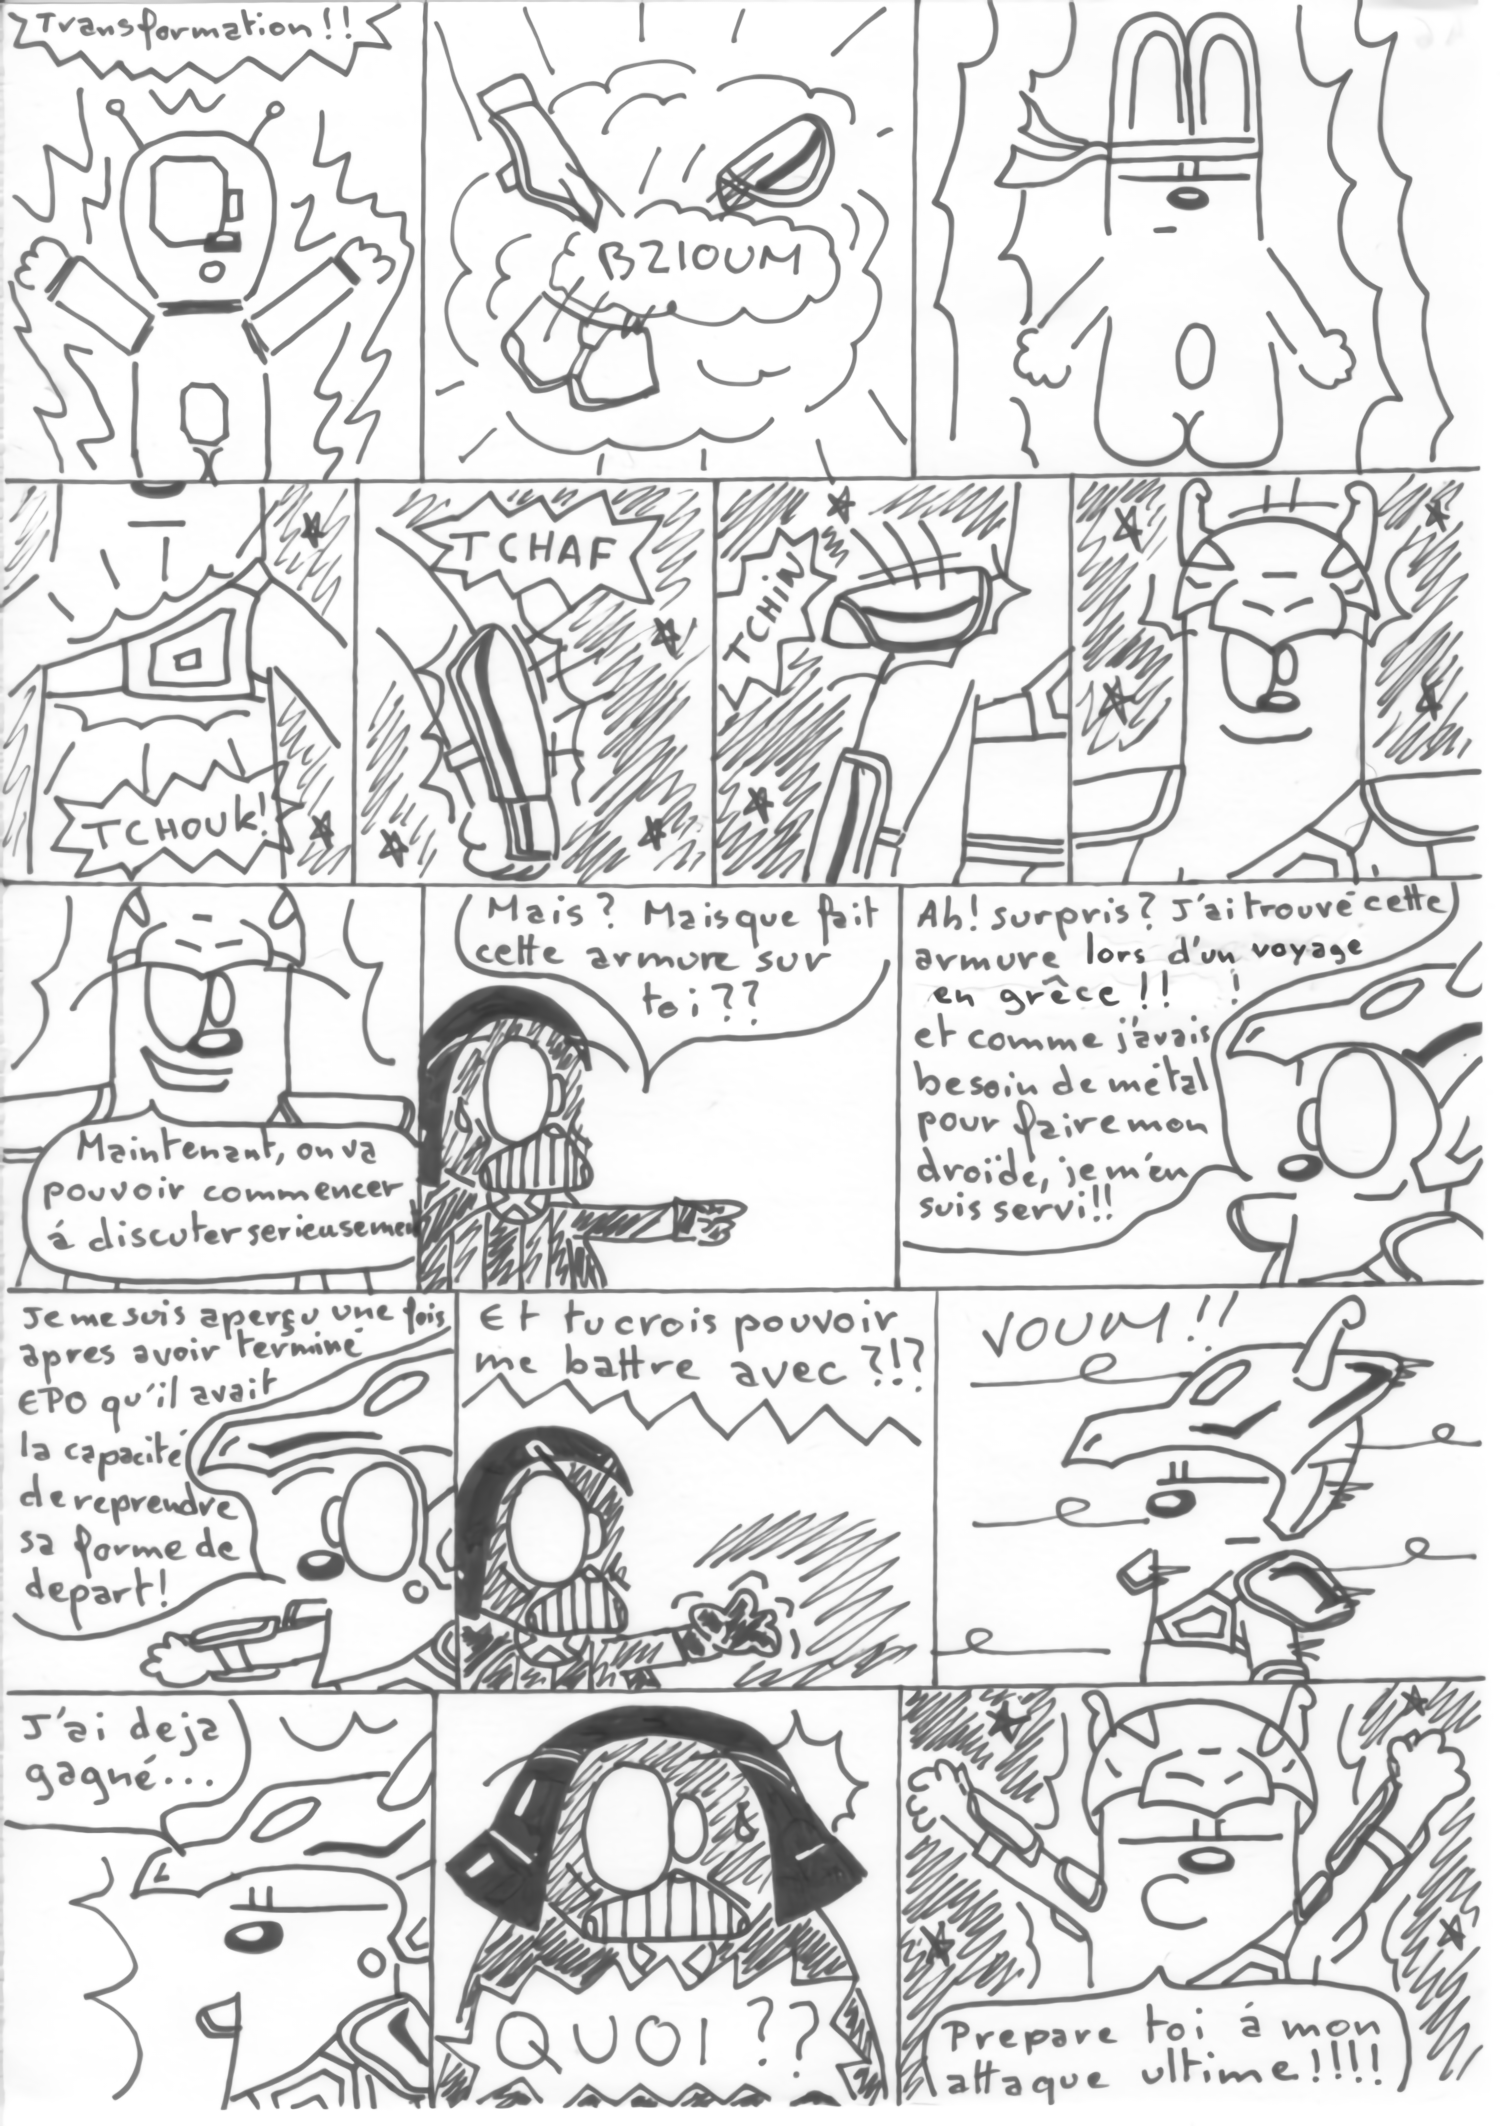 Transformation!!
BZIOUM
TCHOUK!
TCHAF
TCHIN
Maintenant, on va
pouvoir commencer
à discuter serieusement
Mais? Mais que fait
cette armure sur
toi??
Ah! surpris? J'ai trouvé cette
armure lors d'un voyage
en grêce!! !
et comme j'avais
besoin de métal
pour faire mon
droïde, je m'en
suis servi!!
Je me suis aperçu une fois
apres avoir terminé
EPO qu'il avait
la capacité
de reprendre
sa forme de
depart!
Et tu crois pouvoir
me battre avec?!?
VOUM!!
J'ai deja
gagné...
QUOI??
Prepare toi à mon
attaque ultime!!!!